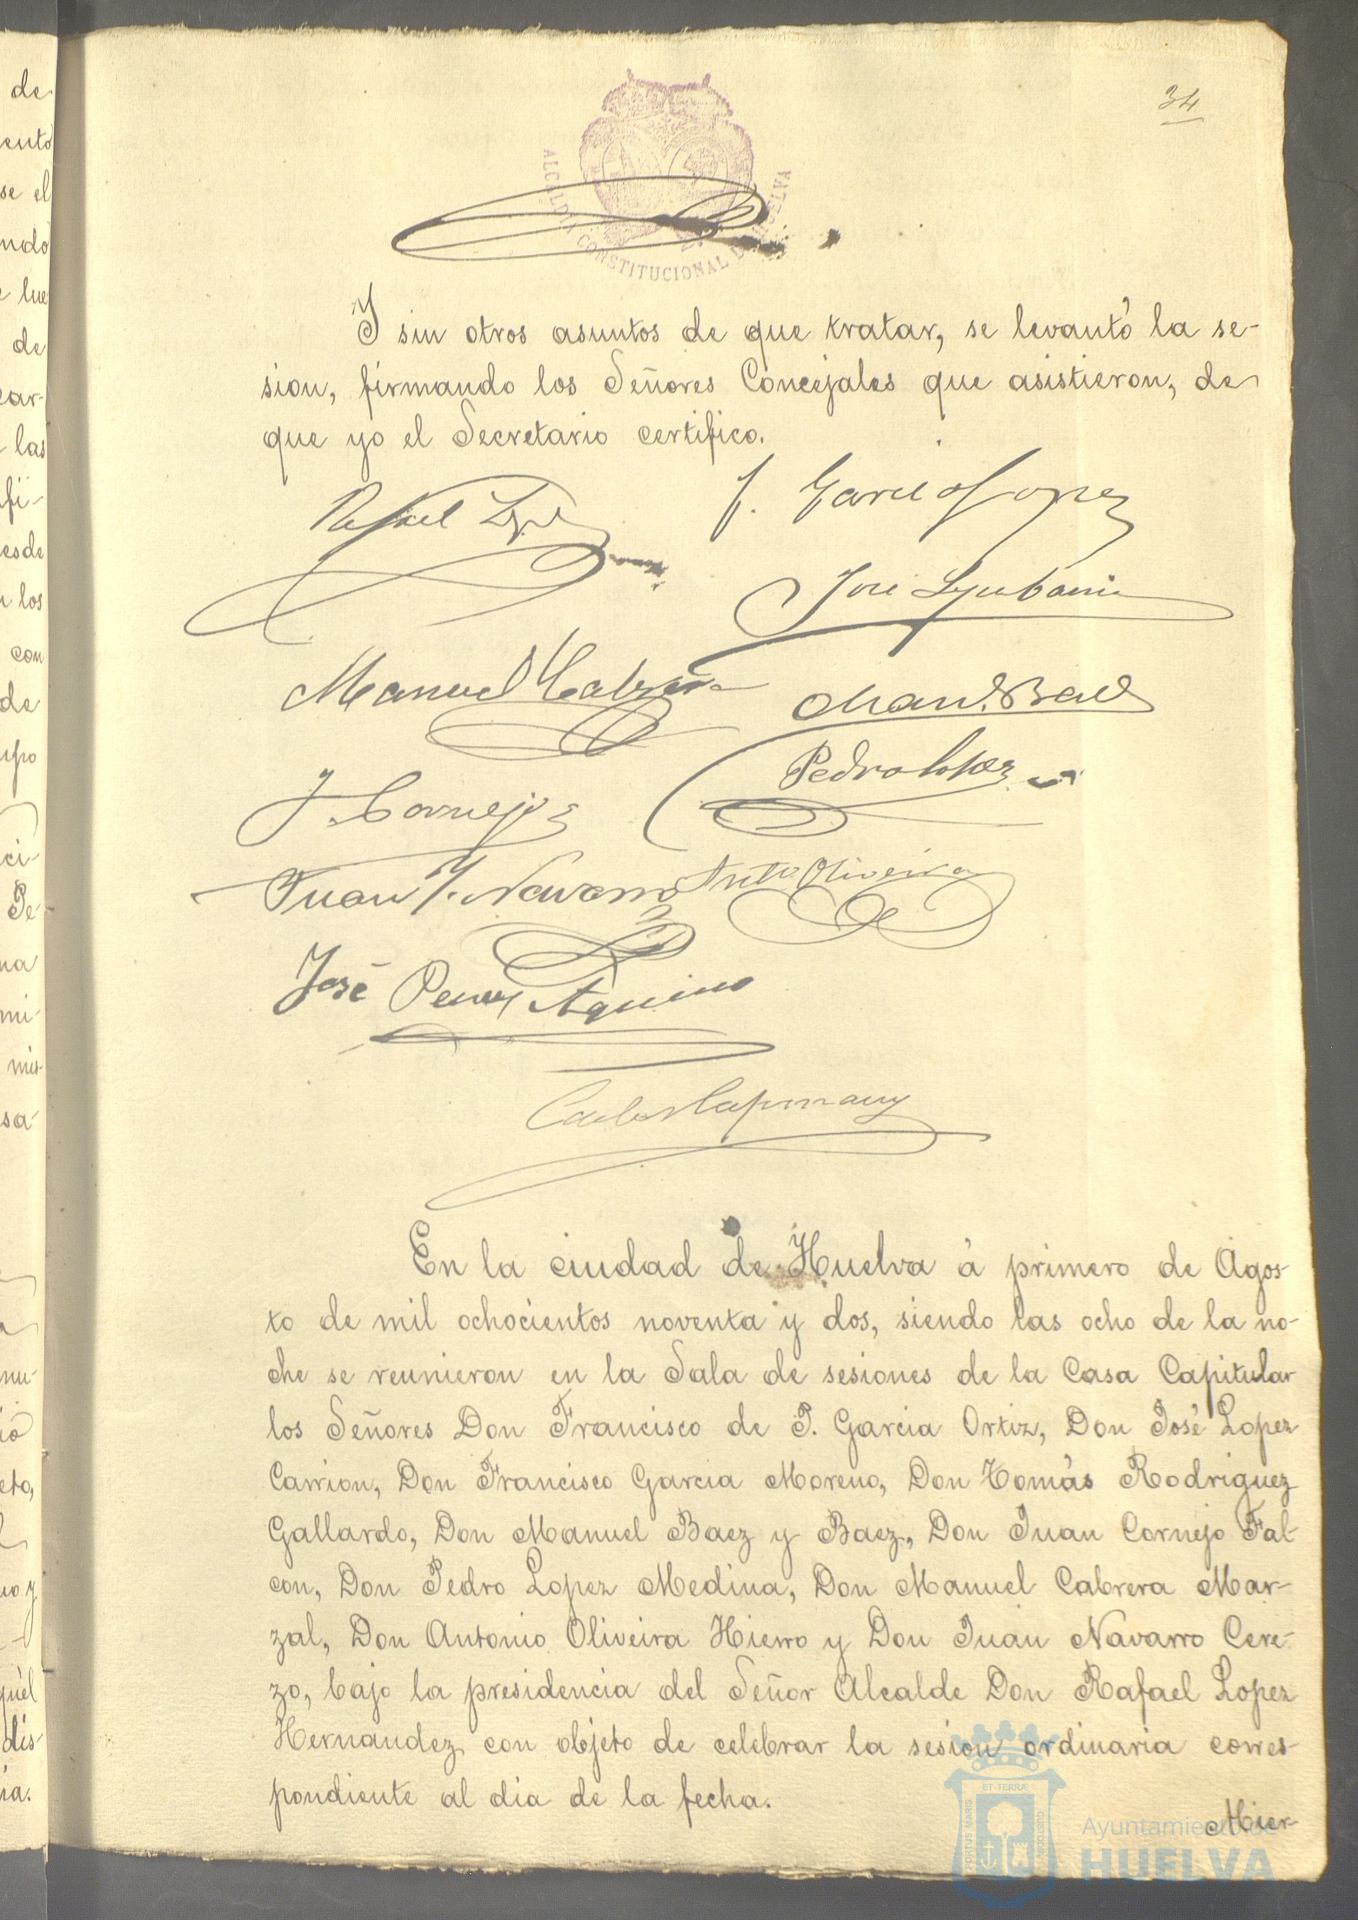 34
ALCALDIA CONSTITUCIONAL DE HUELVA
Y sin otros asuntos de que tratar, se levantó la se-
sion, firmando los Señores Concejales que asistieron, de
que yo el Secretario certifico.
Rafael Lopez
J. Garcia Lopez
José
Manuel Cabrera
Man. Baez
Pedro Lopez
J. Cornejo
Juan Navarro
Anto Oliveira
José Perez Aquino
Carlos Capmany
En la ciudad de Huelva á primero de Agos-
to de mil ochocientos noventa y dos, siendo las ocho de la no-
che se reunieron en la Sala de sesiones de la Casa Capitular
los Señores Don Francisco de P. Garcia Ortiz, Don José Lopez
Carrion, Don Francisco Garcia Moreno, Don Tomás Rodriguez
Gallardo, Don Manuel Baez y Baez, Don Juan Cornejo Fal-
con, Don Pedro Lopez Medina, Don Manuel Cabrera Mar-
zal, Don Antonio Oliveira Hierro y Don Juan Navarro Cere-
zo, bajo la presidencia del Señor Alcalde Don Rafael Lopez
Hernandez con objeto de celebrar la sesion ordinaria corres-
pondiente al dia de la fecha.
Mier-
PORTUS MARIS ET TERRÆ CUSTODIA
Ayuntamiento de
HUELVA
de
ento
se el
ando
lue
de
car-
las
fi-
esde
los
con
de
upo
ci-
Pe-
na
mi-
mis-
sa-
nu-
eto,
dis-
ia.